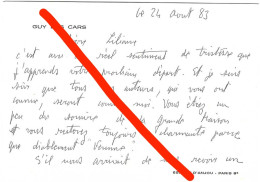 Le 24 Août 83
GUY DES CARS
Chère Liliane
c'est un réel sentiment de tristesse que
j'apprends votre prochain départ. Et je suis
sûr que tous les auteurs, qui vous ont
connue, seront comme moi. Vous étiez un
peu du sourire de la grande maison
et vous resterez toujours charmante parce
que diablement femme!
S'il nous arrivait de nous revoir un
D'ANJOU - PARIS 8e